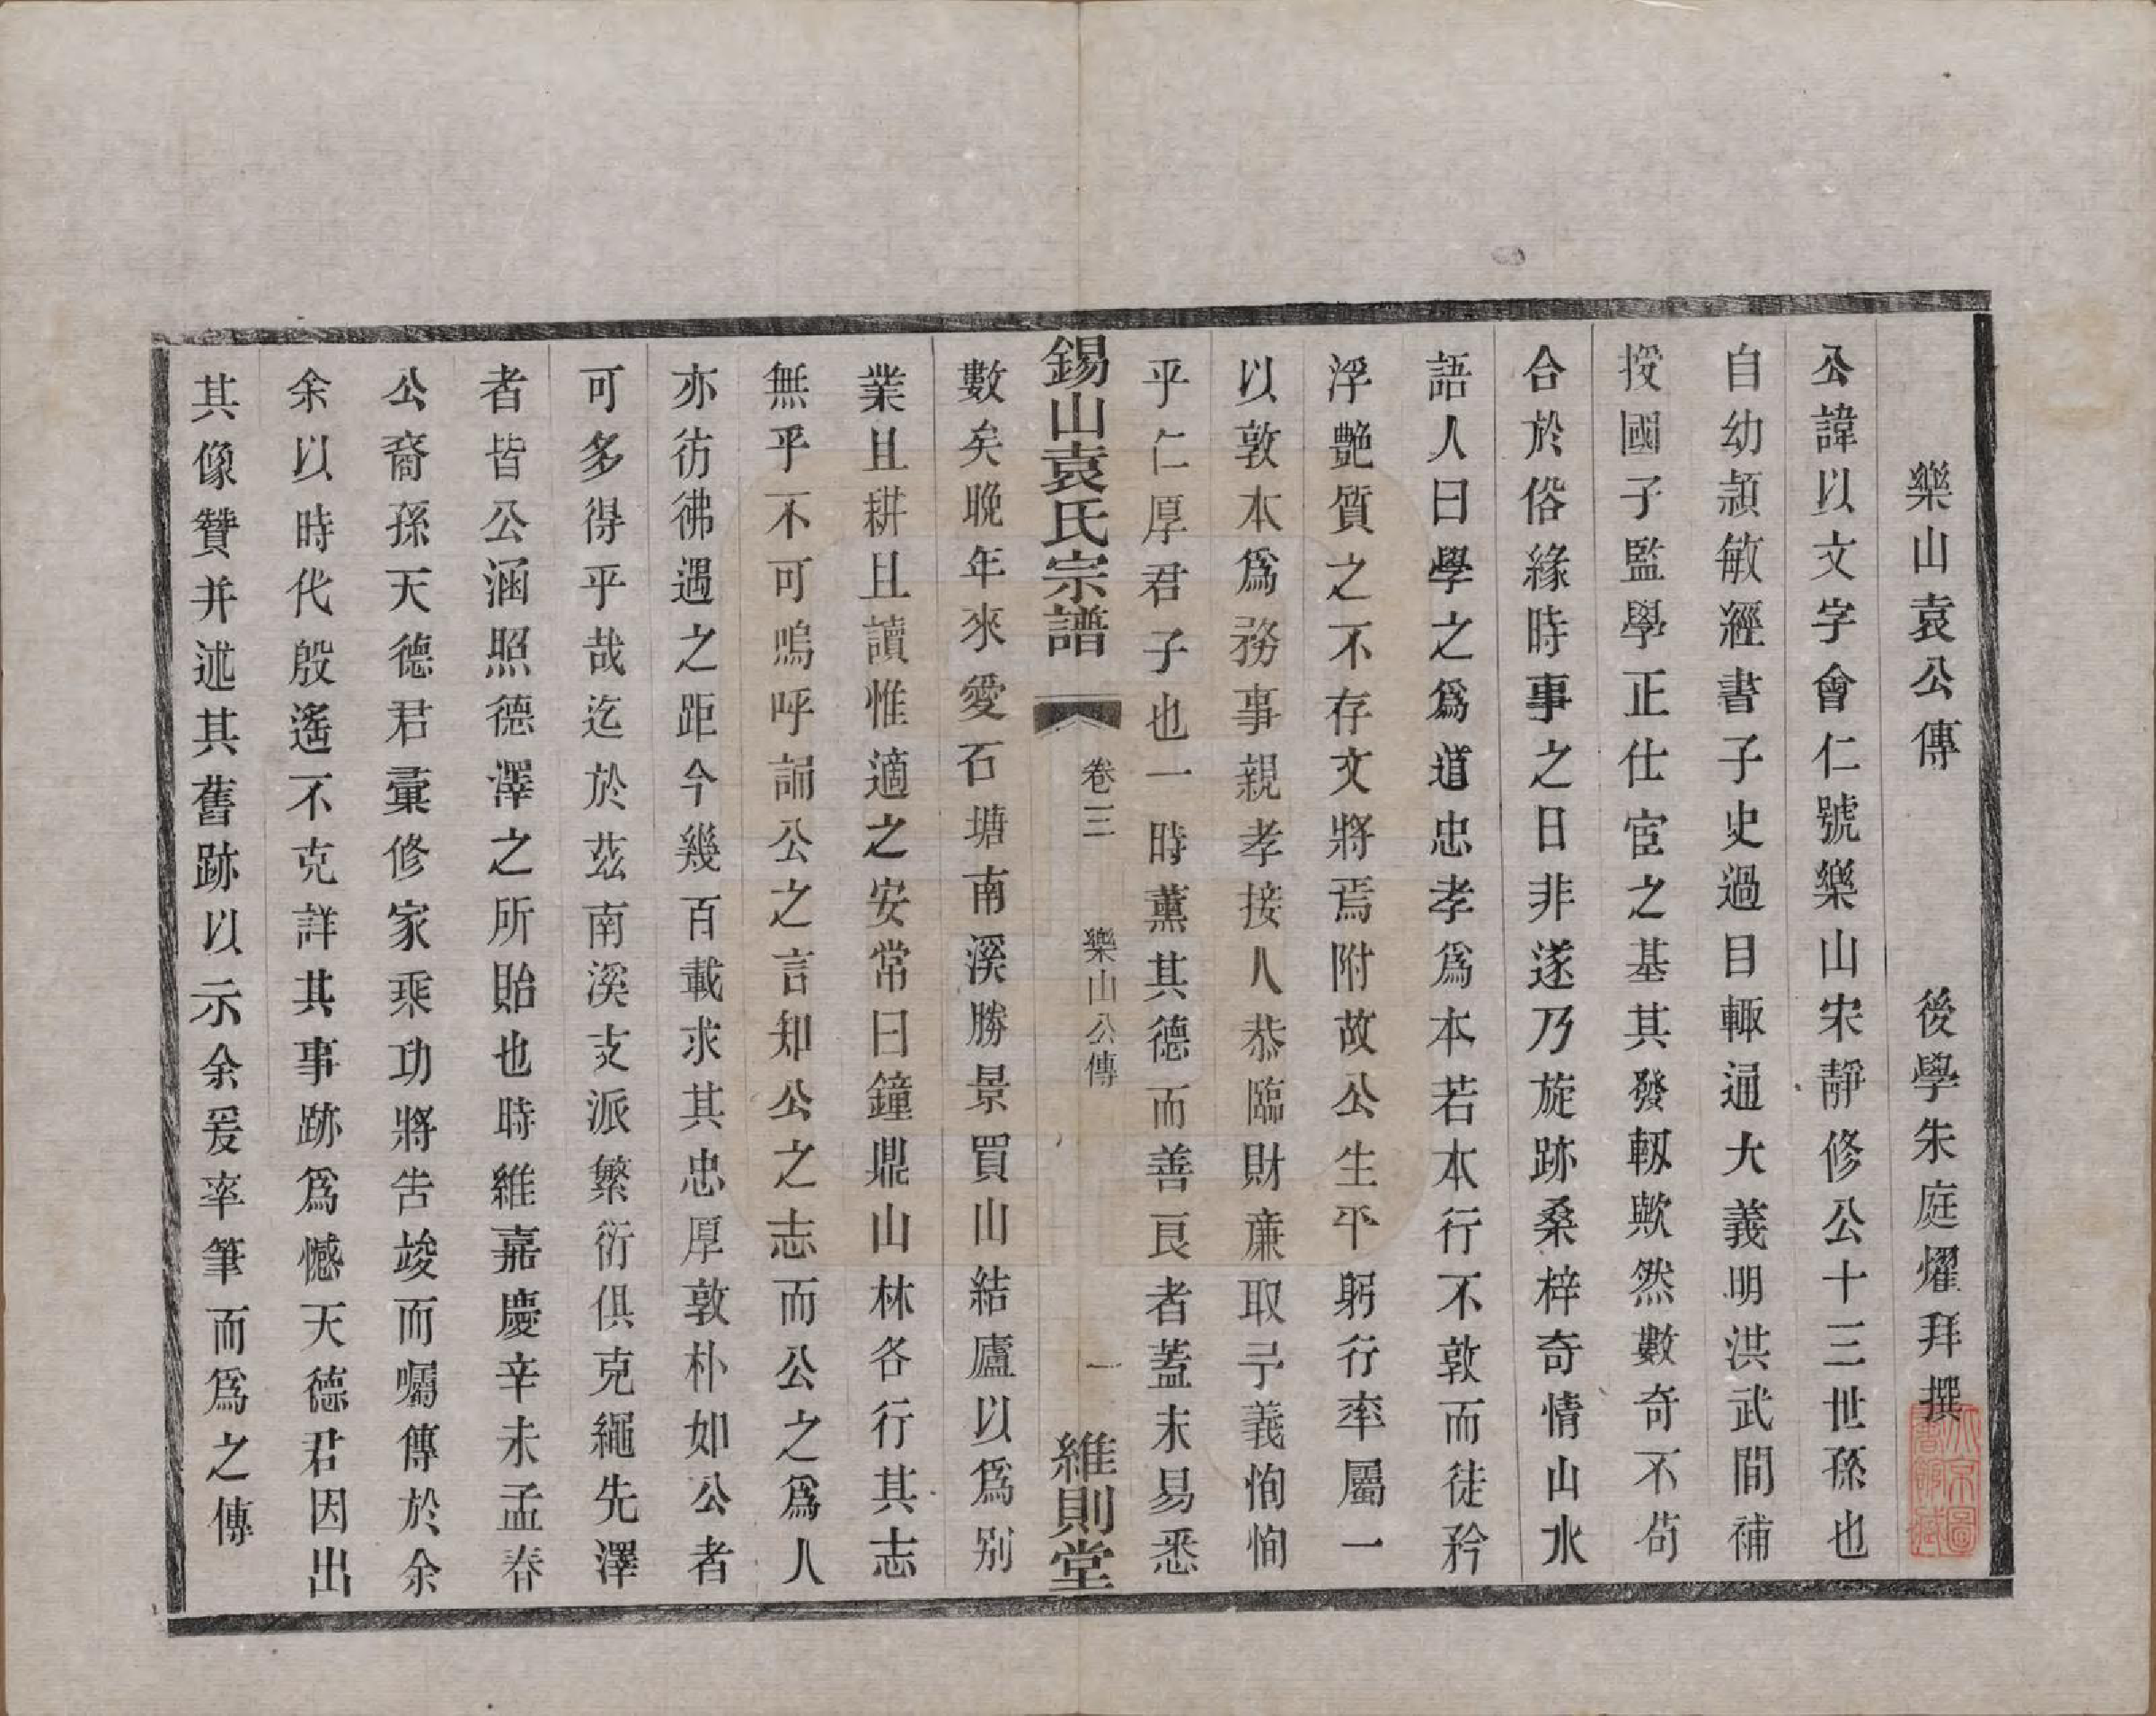 樂山袁公傳
後學朱庭燿拜撰
公諱以文字會仁號樂山宋靜修公十三世孫也
自幼頴敏經書子史過目輒通大義明洪武間補
授國子監學正仕宦之基其發軔歟然數奇不苟
合於俗緣時事之日非遂乃旋跡桑梓奇情山水
語人曰學之爲道忠孝爲本若本行不敦而徒矜
浮艷質之不存文將焉附故公生平躬行率屬一
以敦本爲務事親孝接人恭臨財亷取予義恂恂
乎仁厚君子也一時薰其德而善良者蓋末易悉
錫山袁氏宗譜
卷三
樂山公傳
一
維則堂
數矣晚年來愛石塘南溪勝景買山結廬以爲別
業且耕且讀惟適之安常曰鐘鼎山林各行其志
無乎不可嗚呼誦公之言知公之志而公之爲人
亦彷彿遇之距今幾百載求其忠厚敦朴如公者
可多得乎哉迄於茲南溪支派繁衍俱克繩先澤
者皆公涵照德澤之所貽也時維嘉慶辛未孟春
公裔孫天德君彙修家乘功將告竣而囑傳於余
余以時代殷遙不克詳其事跡爲憾天德君因出
其像贊并述其舊跡以示余爰率筆而爲之傳